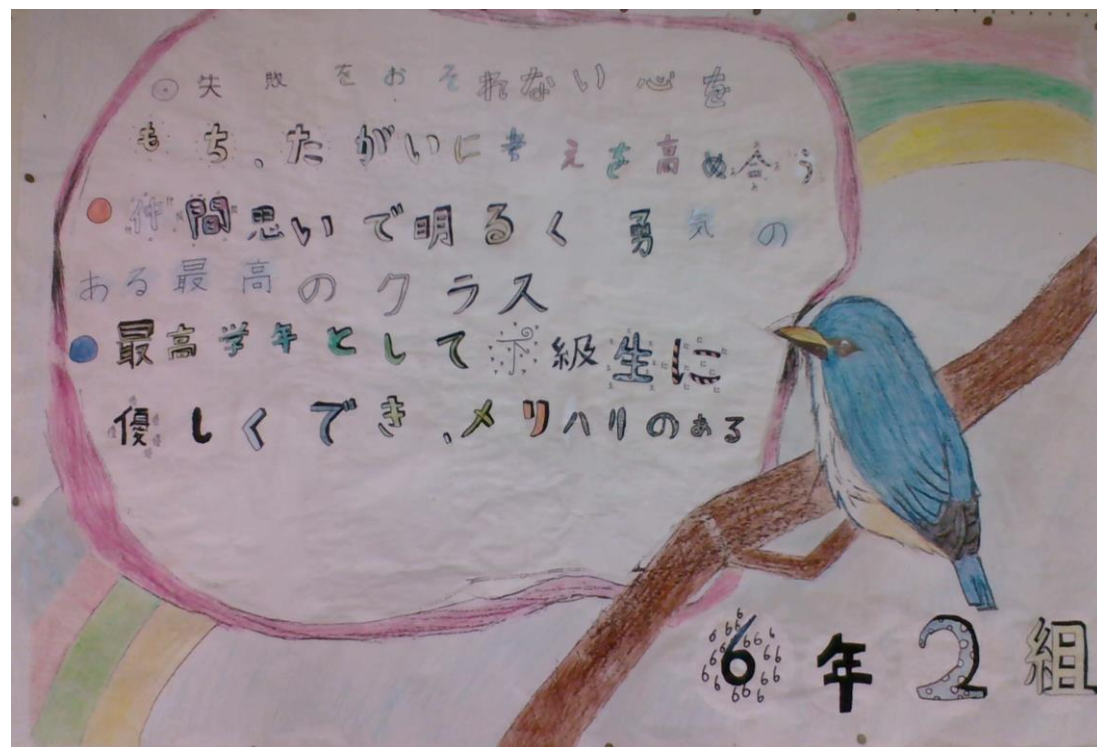 ◎失敗をおそれない心を
もち、たがいに考えを高め合う
●仲間思いで明るく勇気の
ある最高のクラス
●最高学年として下級生に
優しくでき、メリハリのある
6年2組